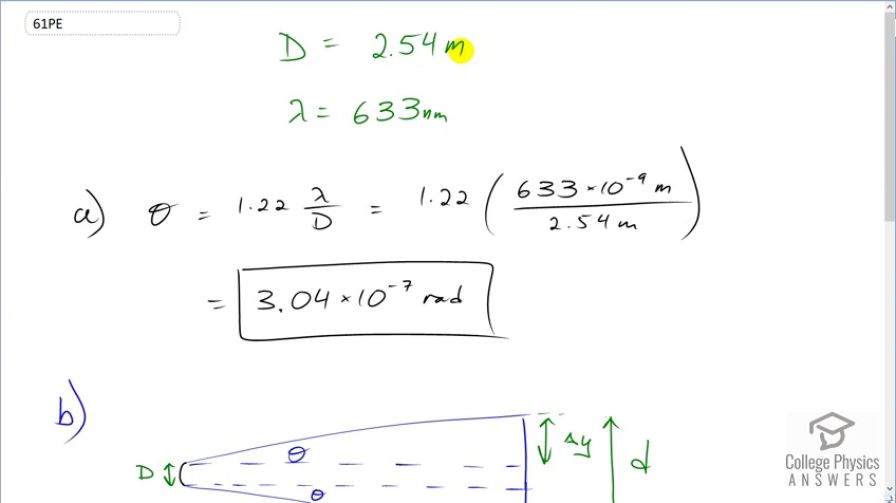 61PE
D = 2.54 m
λ = 633 nm
a) θ = 1.22 λ/D = 1.22 (633 × 10⁻⁹ m / 2.54 m)
= 3.04 × 10⁻⁷ rad
b)
θ
Δy
d
D
θ
College Physics
ANSWERS